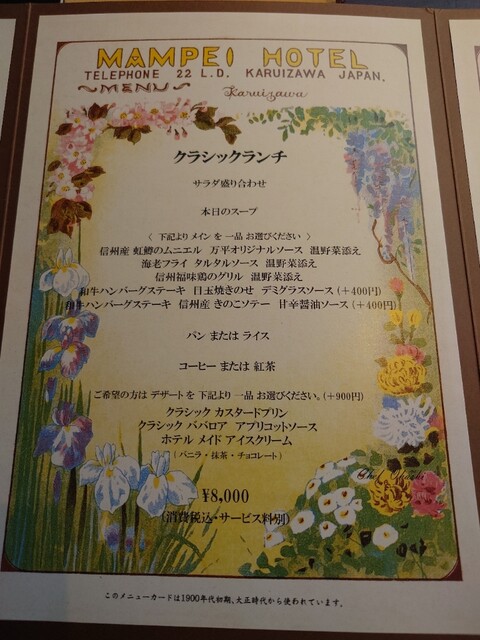 MAMPEI HOTEL
TELEPHONE 22 L.D. KARUIZAWA JAPAN.
~MENU~ Karuizawa
クラシックランチ
サラダ盛り合わせ
本日のスープ
〈 下記より メイン を 一品 お選びください 〉
信州産 虹鱒のムニエル 万平オリジナルソース 温野菜添え
海老フライ タルタルソース 温野菜添え
信州福味鶏のグリル 温野菜添え
和牛ハンバーグステーキ 目玉焼きのせ デミグラスソース (+400円)
和牛ハンバーグステーキ 信州産 きのこソテー 甘辛醤油ソース (+400円)
パン または ライス
コーヒー または 紅茶
ご希望の方は デザート を 下記より 一品 お選びください。(+900円)
クラシック カスタードプリン
クラシック ババロア アプリコットソース
ホテル メイド アイスクリーム
(バニラ・抹茶・チョコレート)
¥8,000
(消費税込・サービス料別)
このメニューカードは1900年代初期、大正時代から使われています。